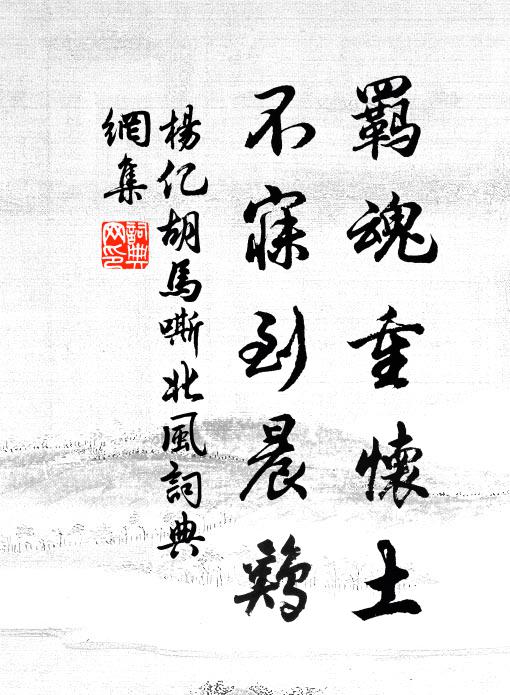 羈魂重懷土
不寐到晨鷄
楊亿胡馬嘶北風詞典
網集
詞典
网印